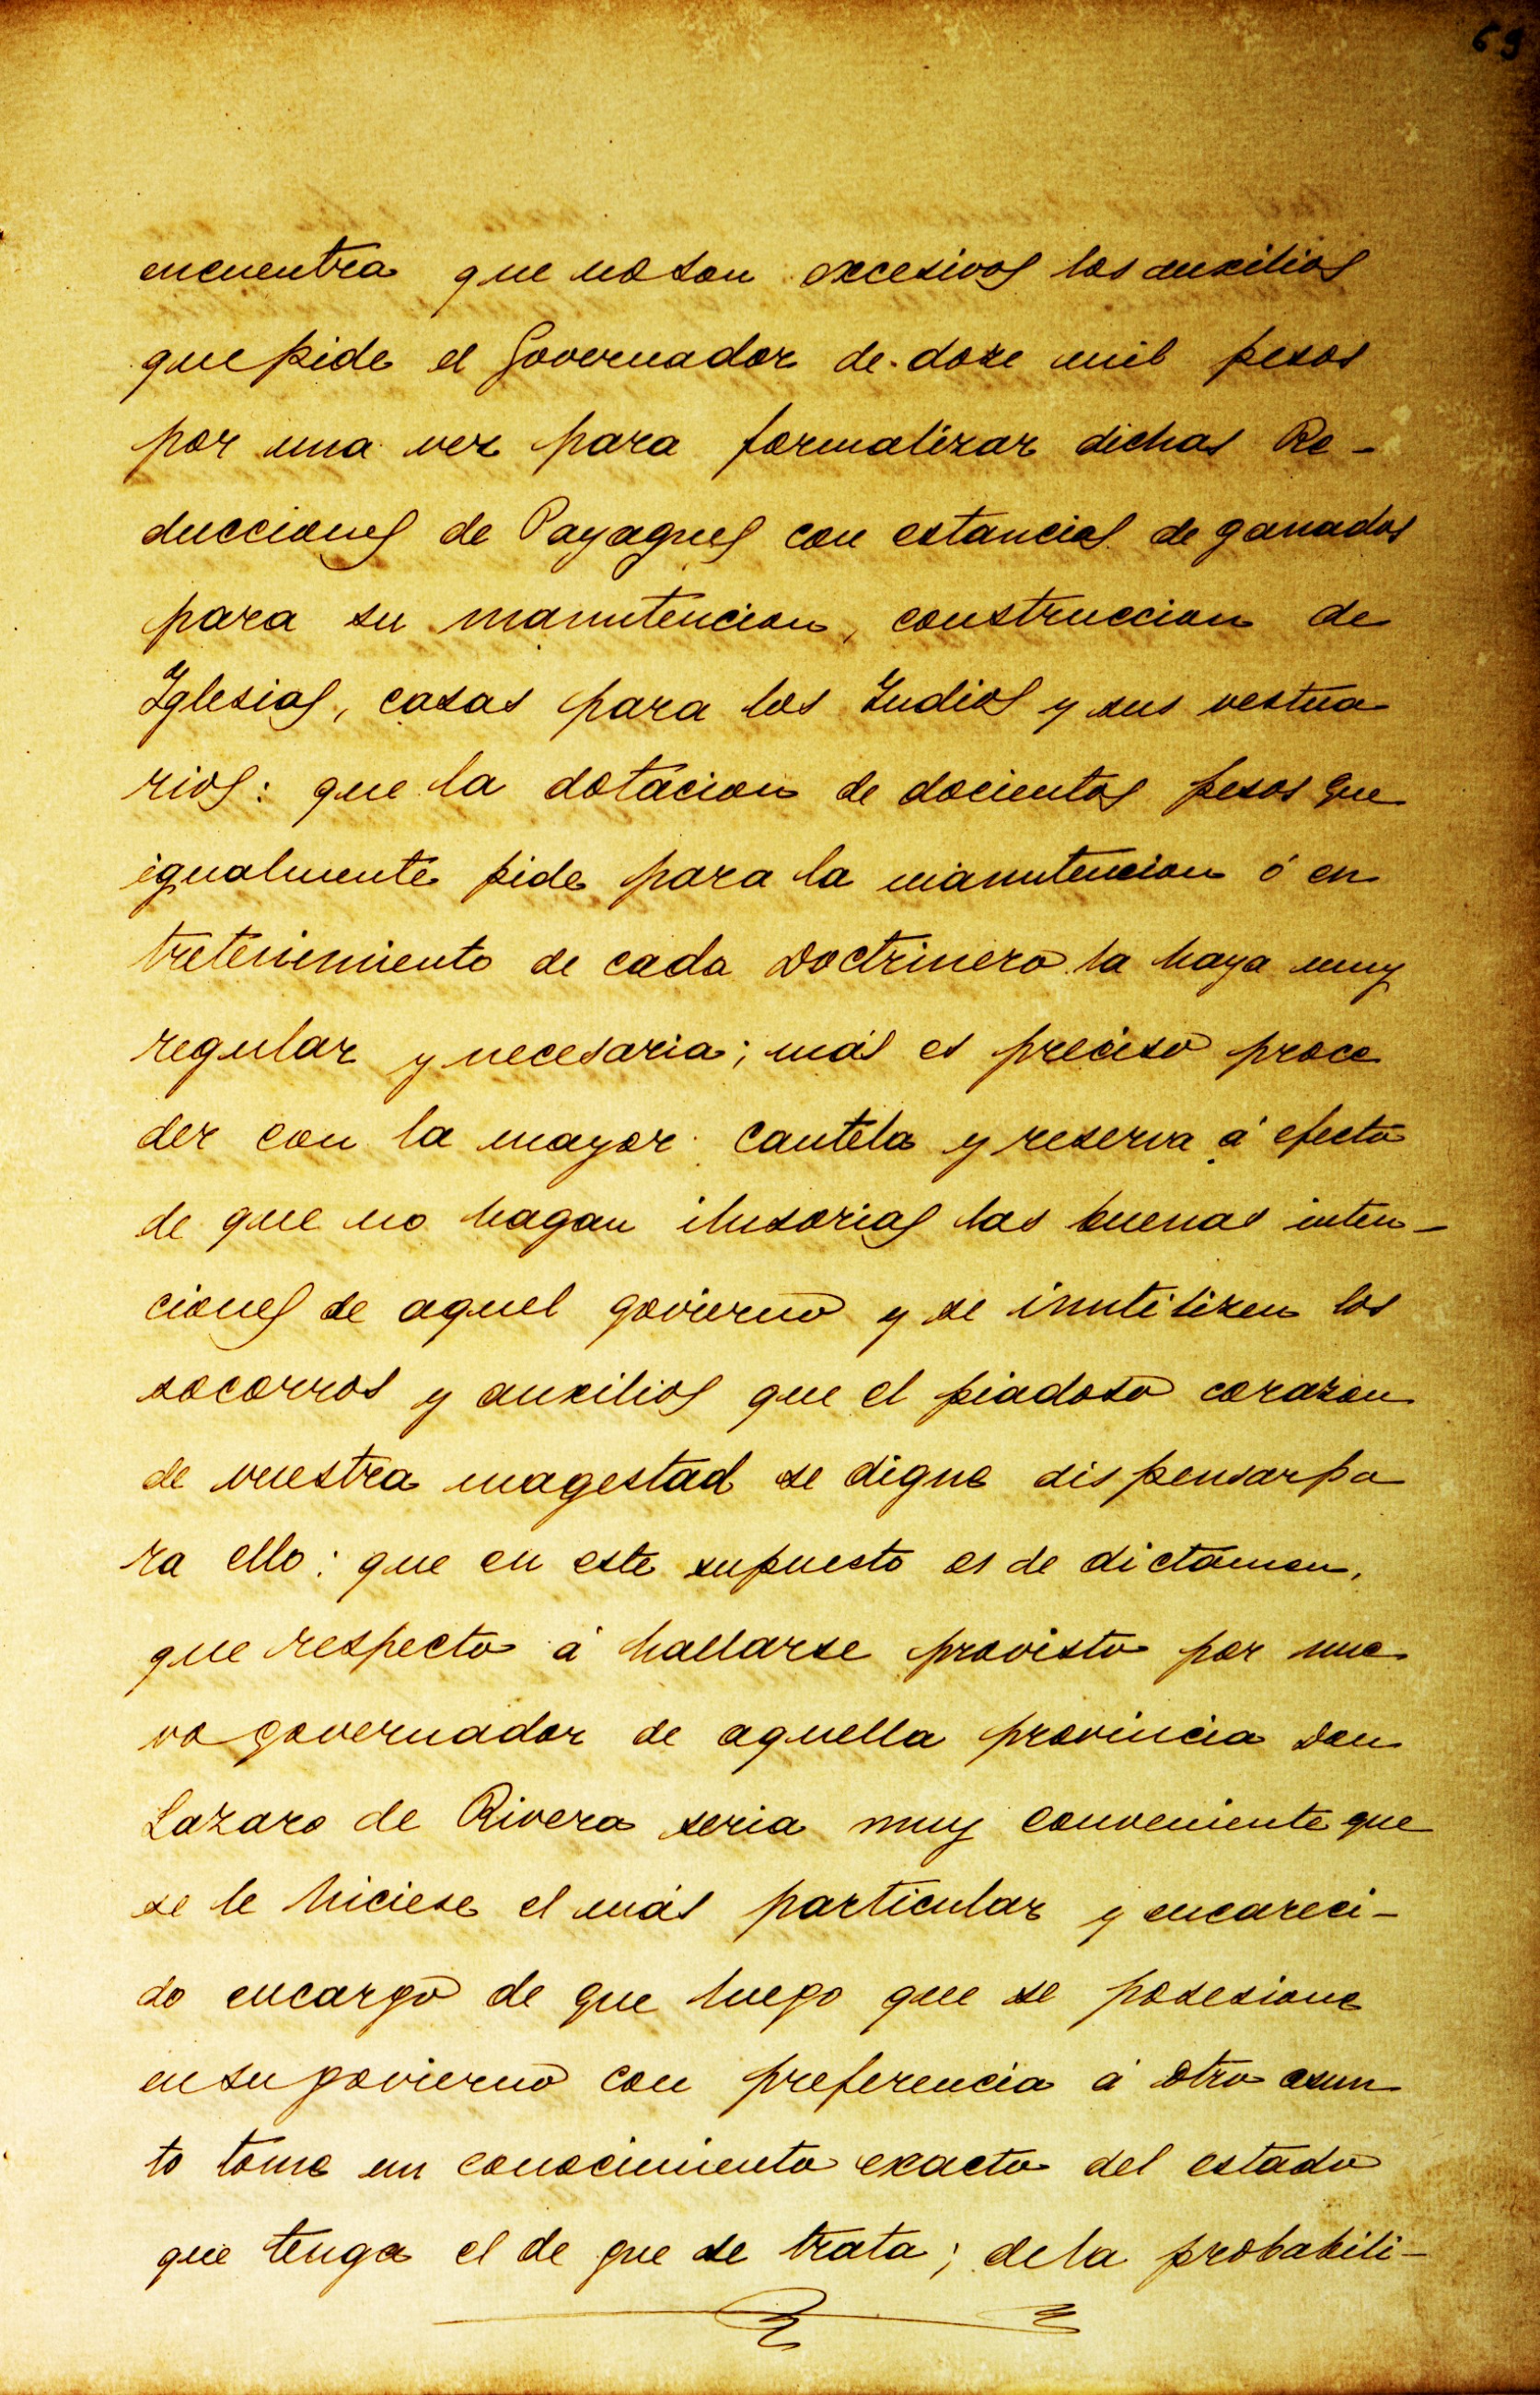 69
encuentra que no son excesivos los auxilios
que pide el Governador de doze mil pesos
por una vez para formalizar dichas Re-
ducciones de Payagues con estancias de ganados
para su manutencion, construccion de
Iglesias, casas para los Indios y sus vestua
rios: que la dotacion de docientos pesos que
igualmente pide para la manutencion ó en
tretenimiento de cada Doctrinero la haya muy
regular y necesaria; más es preciso proce
der con la mayor cautela y reserva á efecto
de que no hagan ilusorias las buenas inten-
ciones de aquel govierno y se inutilizen los
socorros y auxilios que el piadoso corazon
de vuestra magestad se digne dispensar pa
ra ello: que en este supuesto es de dictamen,
que respecto á hallarse provisto por nue
vo governador de aquella provincia Don
Lazaro de Rivera seria muy conveniente que
se le hiciese el más particular y encareci-
do encargo de que luego que se posesione
en su govierno con preferencia á otro asun
to tome un conocimiento exacto del estado
que tenga el de que se trata; de la probabili-